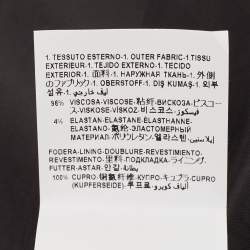 1. TESSUTO ESTERNO-1. OUTER FABRIC-1.TISSU
EXTERIEUR-1.TEJIDO EXTERNO-1.TECIDO
EXTERIOR-1. 面料-1. НАРУЖНАЯ ТКАНЬ-1. 外側
のファブリック-1. OBERSTOFF-1. DIŞ KUMAŞ-1. 외부
섬유-1. ليف خارجي-1.
96% VISCOSA-VISCOSE-粘纤-ВИСКОЗА-ビスコー
ス-VISKOSE-VİSKOZ-비스코스-فيسكوز
4% ELASTAN-ELASTANE-ÉLASTHANNE-
ELASTANO-氨纶-ЭЛАСТОМЕРНЫЙ
МАТЕРИАЛ-ポリウレタン-엘라스탄-إيلاستين
FODERA-LINING-DOUBLURE-REVESTIMIENTO-
REVESTIMENTO-里料-ПОДКЛАДКА-ライニング-
FUTTER-ASTAR-안감-بطانة
100% CUPRO-铜氨纤维-КУПРО-キュプラ-CUPRO
(KUPFERSEIDE)-큐프로-ألياف كوبرو